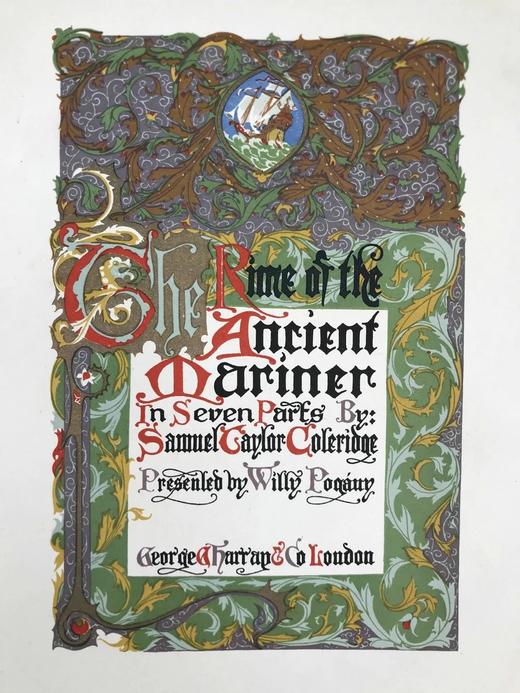 The Rime of the
Ancient
Mariner
In Seven Parts By:
Samuel Taylor Coleridge
Presented by Willy Pogány
George G Harrap & Co London